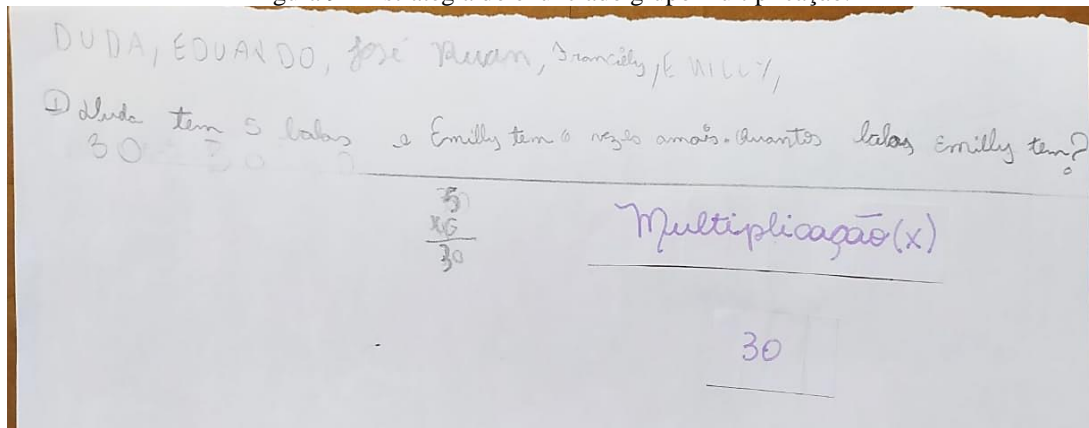 DUDA, EDUARDO, José Ruan, Francièly, EMILLY,
① Duda tem 5 balas e Emilly tem 6 vezes amais. Quantos balas Emilly tem?
30
5
x6
30
Multiplicação (x)
30